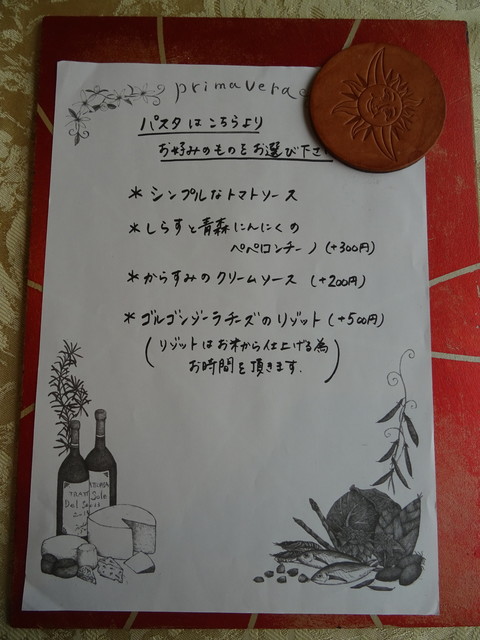 primavera
パスタはこちらより
お好みのものをお選び下さ
＊シンプルなトマトソース
＊しらすと青森にんにくの
ペペロンチーノ(+300円)
＊からすみのクリームソース (+200円)
＊ゴルゴンゾーラチーズのリゾット(+500円)
(リゾットはお米から仕上げる為
お時間を頂きます.)
TRAT
Del Sole